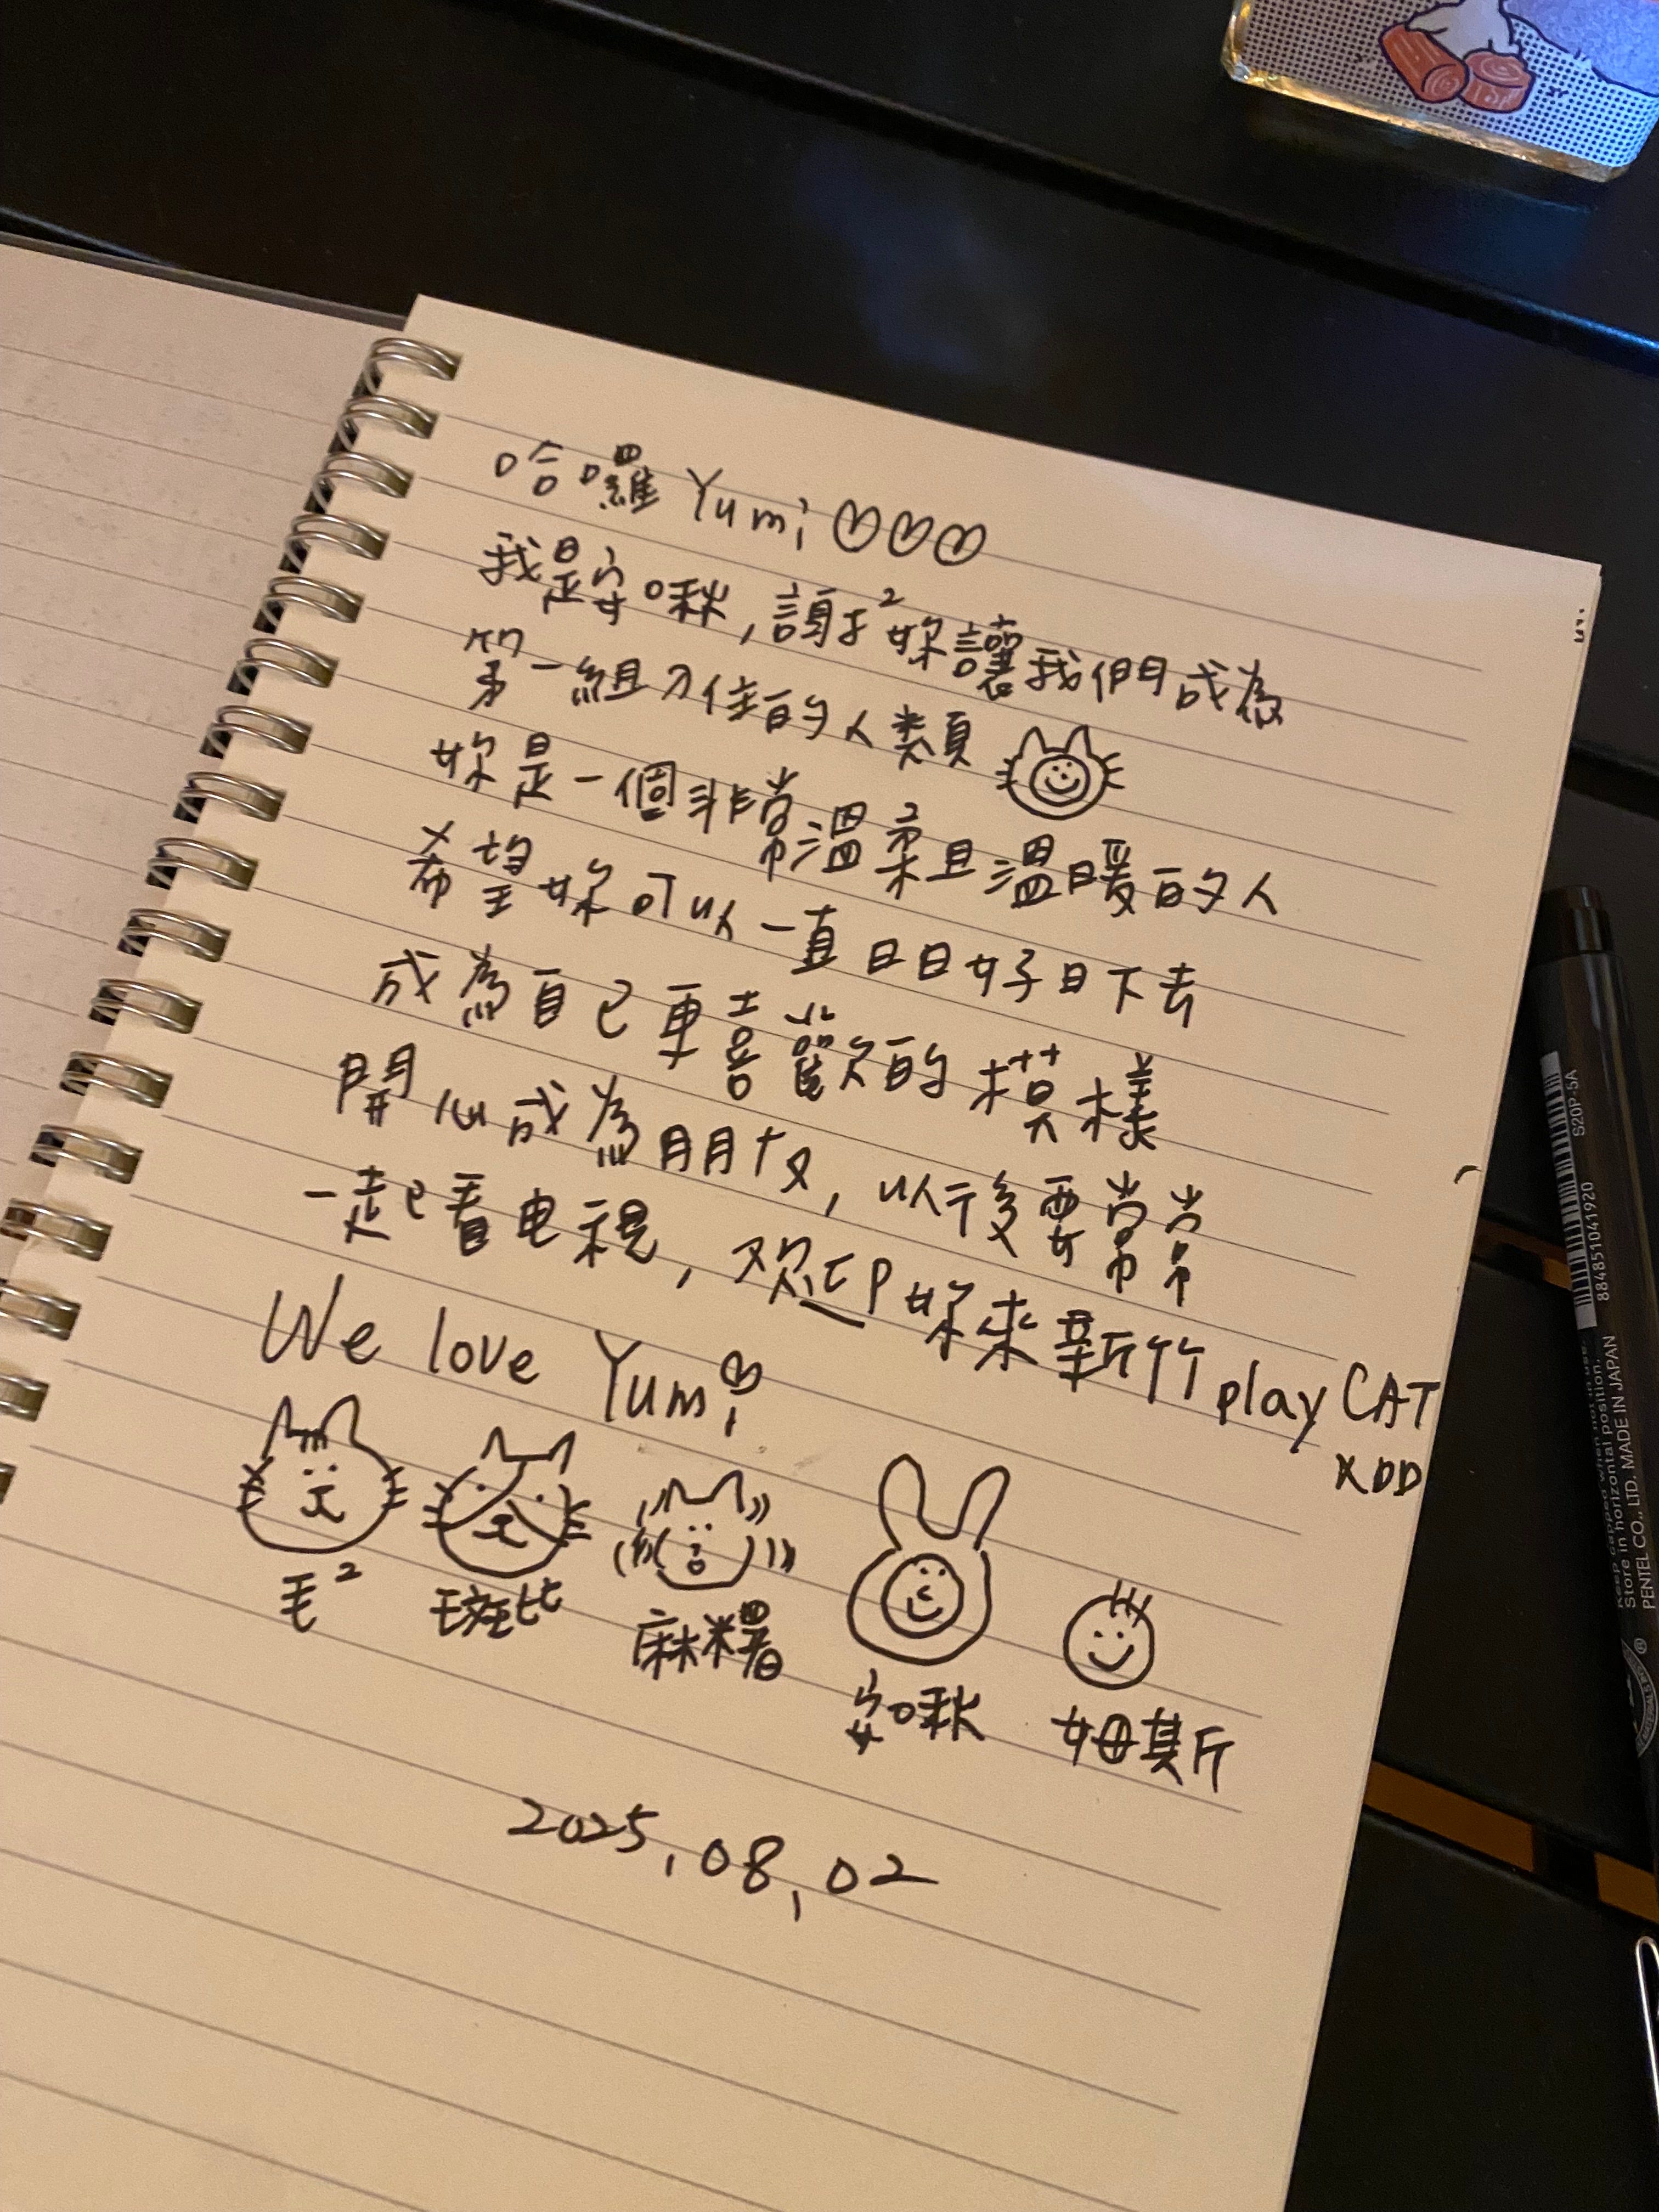 哈囉 Yumi ♡♡♡
我是安咪，謝²妳讓我們成為
第一組入住的人類
妳是一個非常溫柔且溫暖的人
希望妳可以一直日日好日下去
成為自己更喜歡的模樣
開心成為朋友，以後要常常
一起看电視，欢迎妳來新竹 play CAT
XDD
We love Yumi
毛²
斑比
麻糬
安咪
姆斯
2025.08.02
S20P-5A
884851041920
Keep capped when not in use.
Store in horizontal position.
PENTEL CO., LTD. MADE IN JAPAN